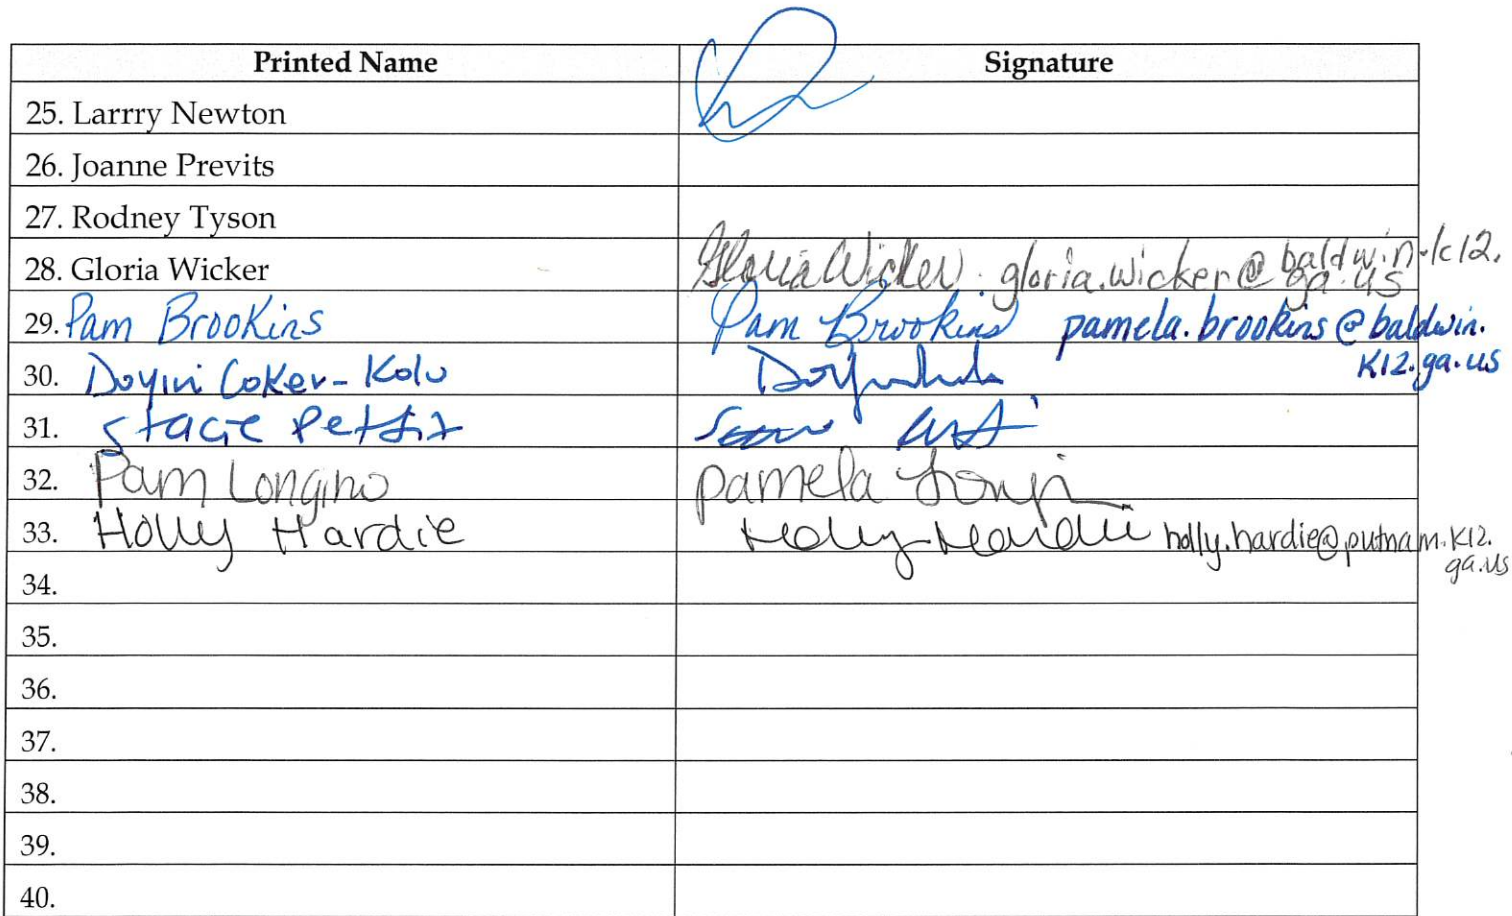 Printed Name Signature
25. Larrry Newton
26. Joanne Previts
27. Rodney Tyson
28. Gloria Wicker Gloria Wicker gloria.wicker@baldwin.k12.
ga.us
29. Pam Brookins Pam Brookins pamela.brookins@baldwin.
K12.ga.us
30. Doyin Coker-Kolo
31. Stacie Pettit
32. Pam Longino pamela
33. Holly Hardie Holly Hardie holly.hardie@putnam.K12.
ga.us
34.
35.
36.
37.
38.
39.
40.